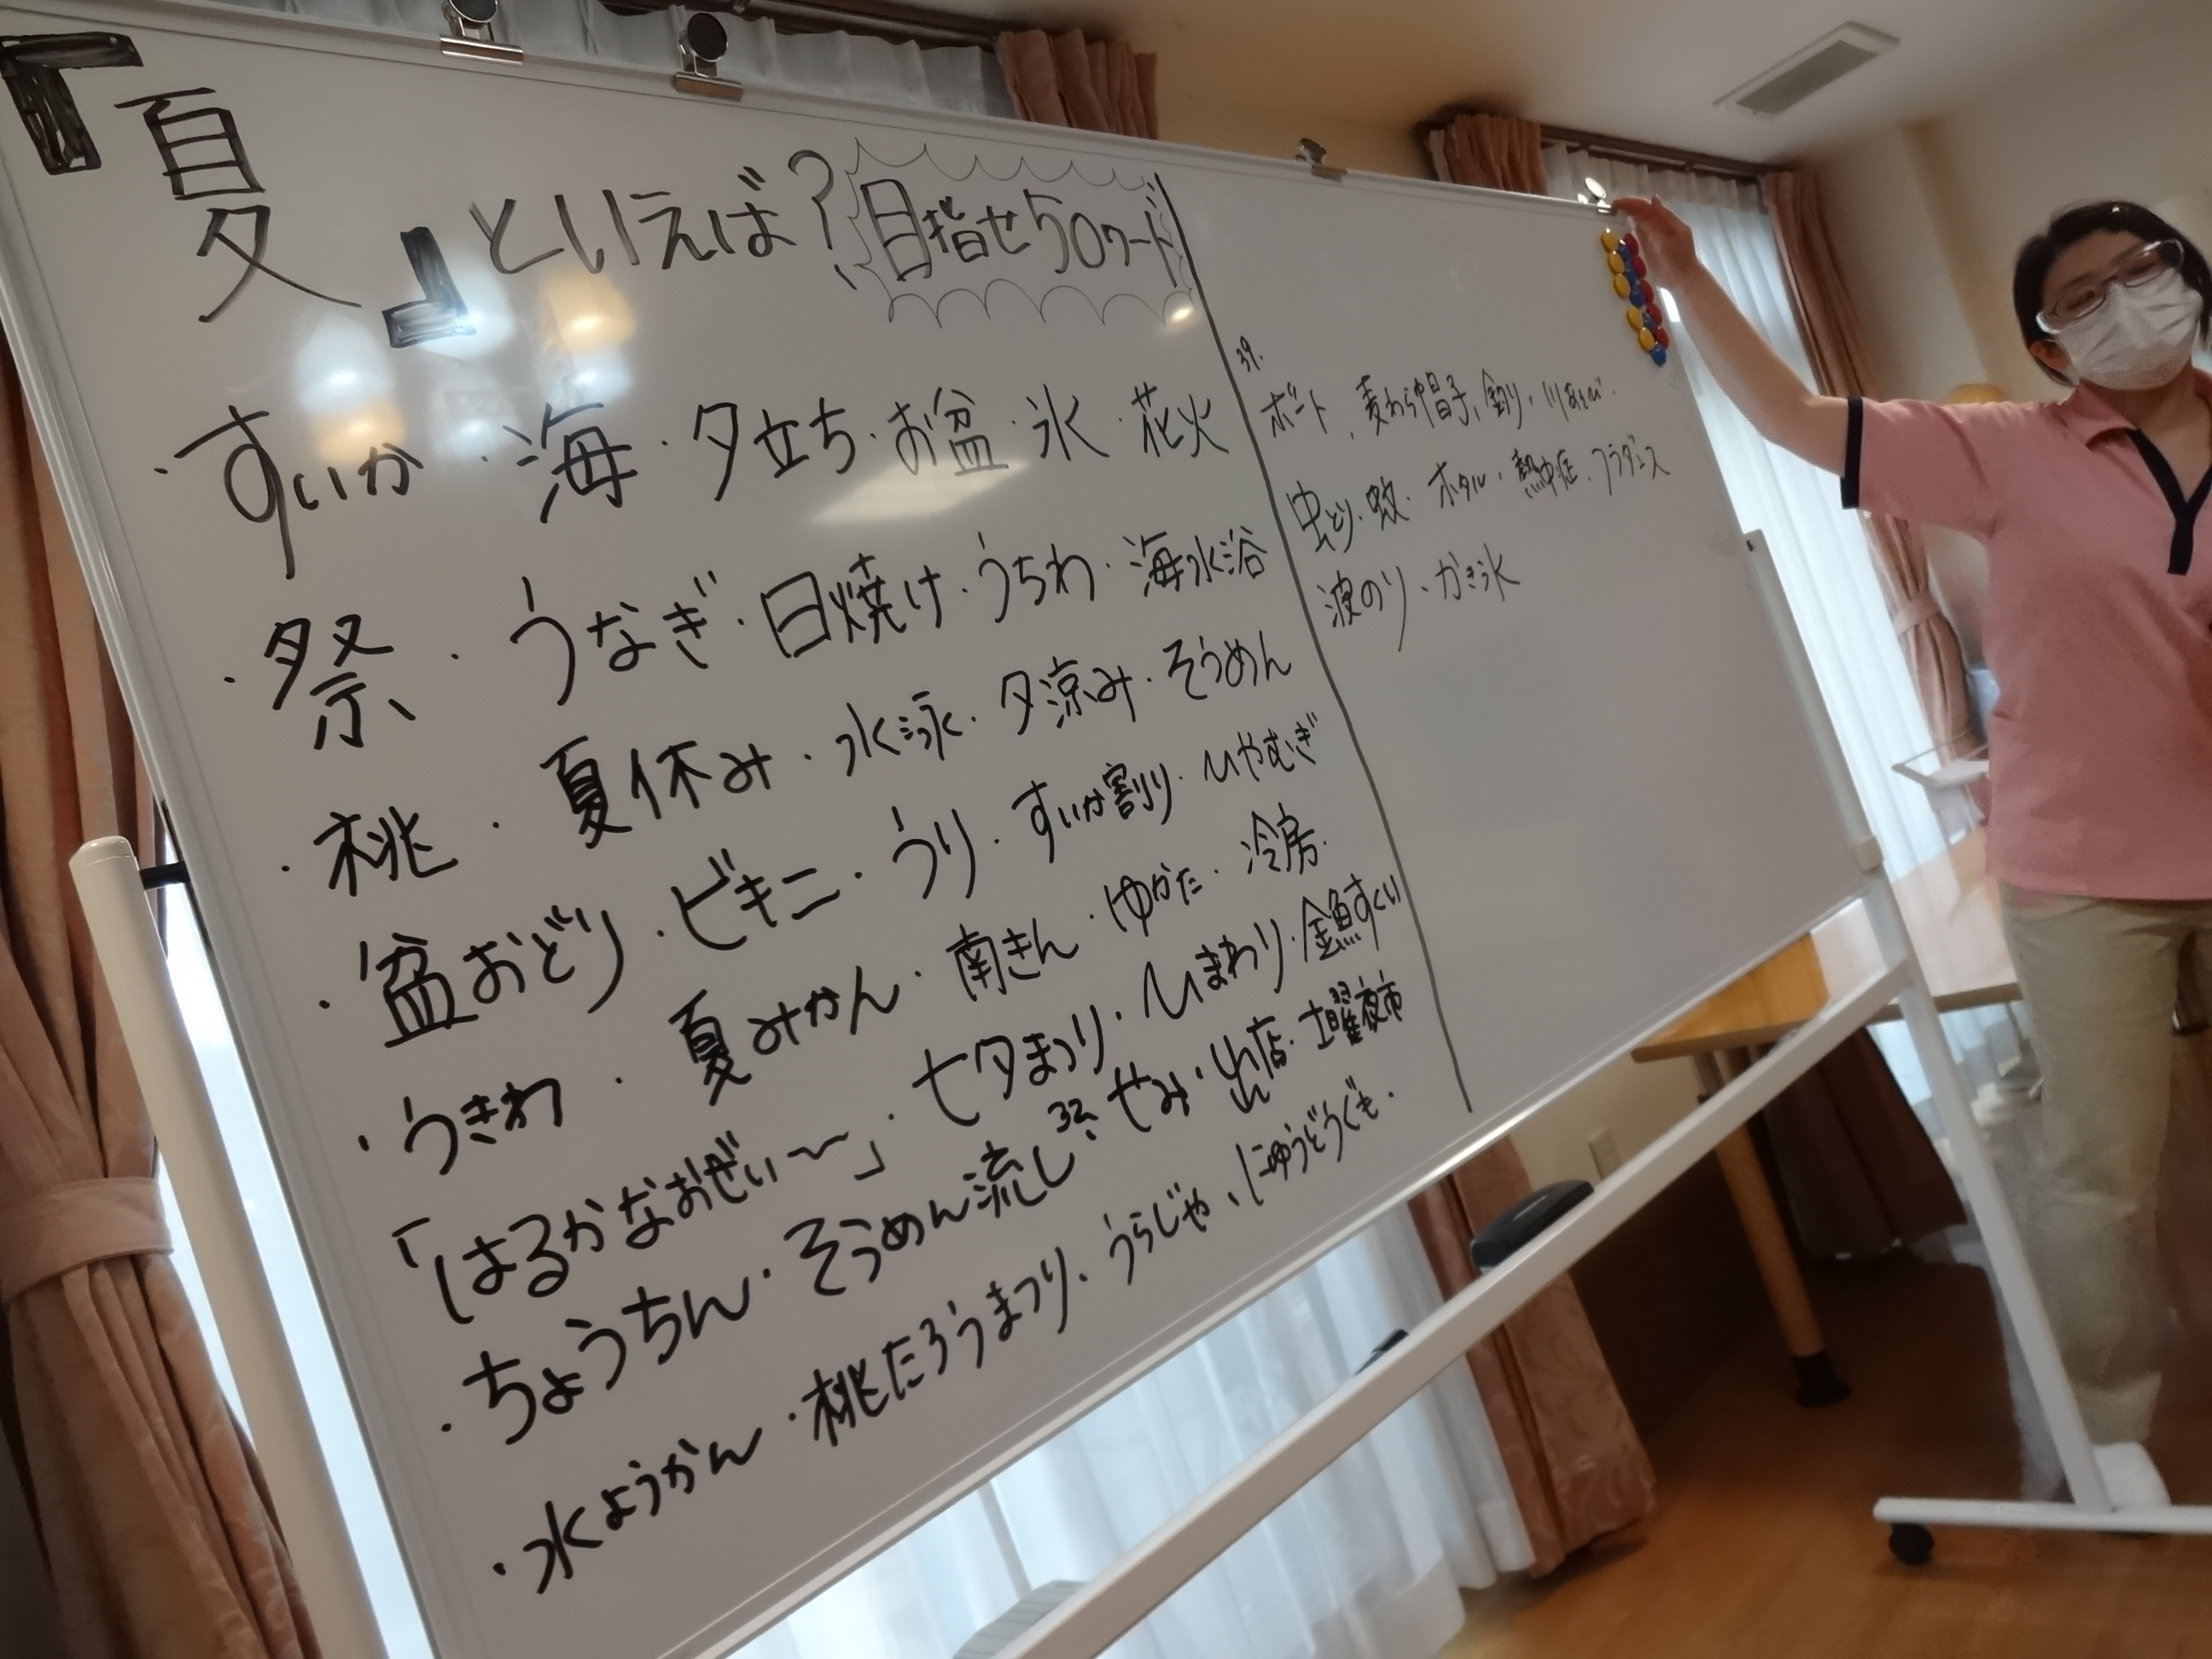 『夏』といえば? 目指せ50ワード
・すいか・海・夕立ち・お盆・氷・花火
・祭・うなぎ・日焼け・うちわ・海水浴
・桃・夏休み・水泳・夕涼み・そうめん
・盆おどり・ビキニ・うり・すいか割り・ひやむぎ
・うきわ・夏みかん・南きん・ゆかた・冷房・
「はるかなおぜぃ〜」・七夕まつり・ひまわり・金魚すくい
・ちょうちん・そうめん流し・32.せみ・出店・土曜夜市
・水ようかん・桃たろうまつり・うらじゃ、にゅうどうぐも・
39.
ボート、麦わら帽子、釣り、川あそび・
虫とり・蚊・ホタル・熱中症・フラダンス
波のり・かき氷